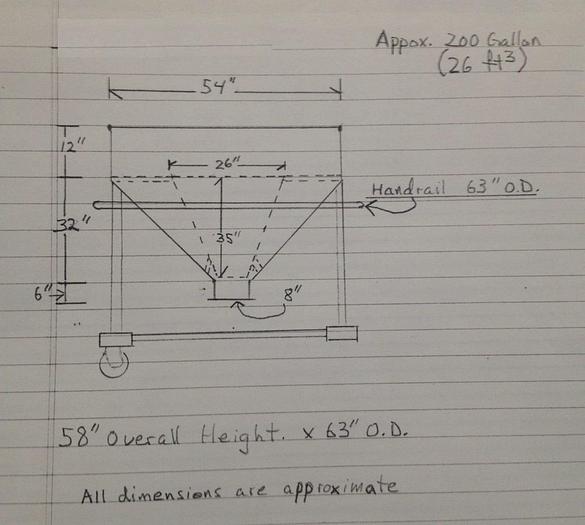 Appox. 200 Gallon
(26 ft3)
54"
12"
26"
Handrail 63" O.D.
32"
35"
6"
8"
58" Overall Height. x 63" O.D.
All dimensions are approximate